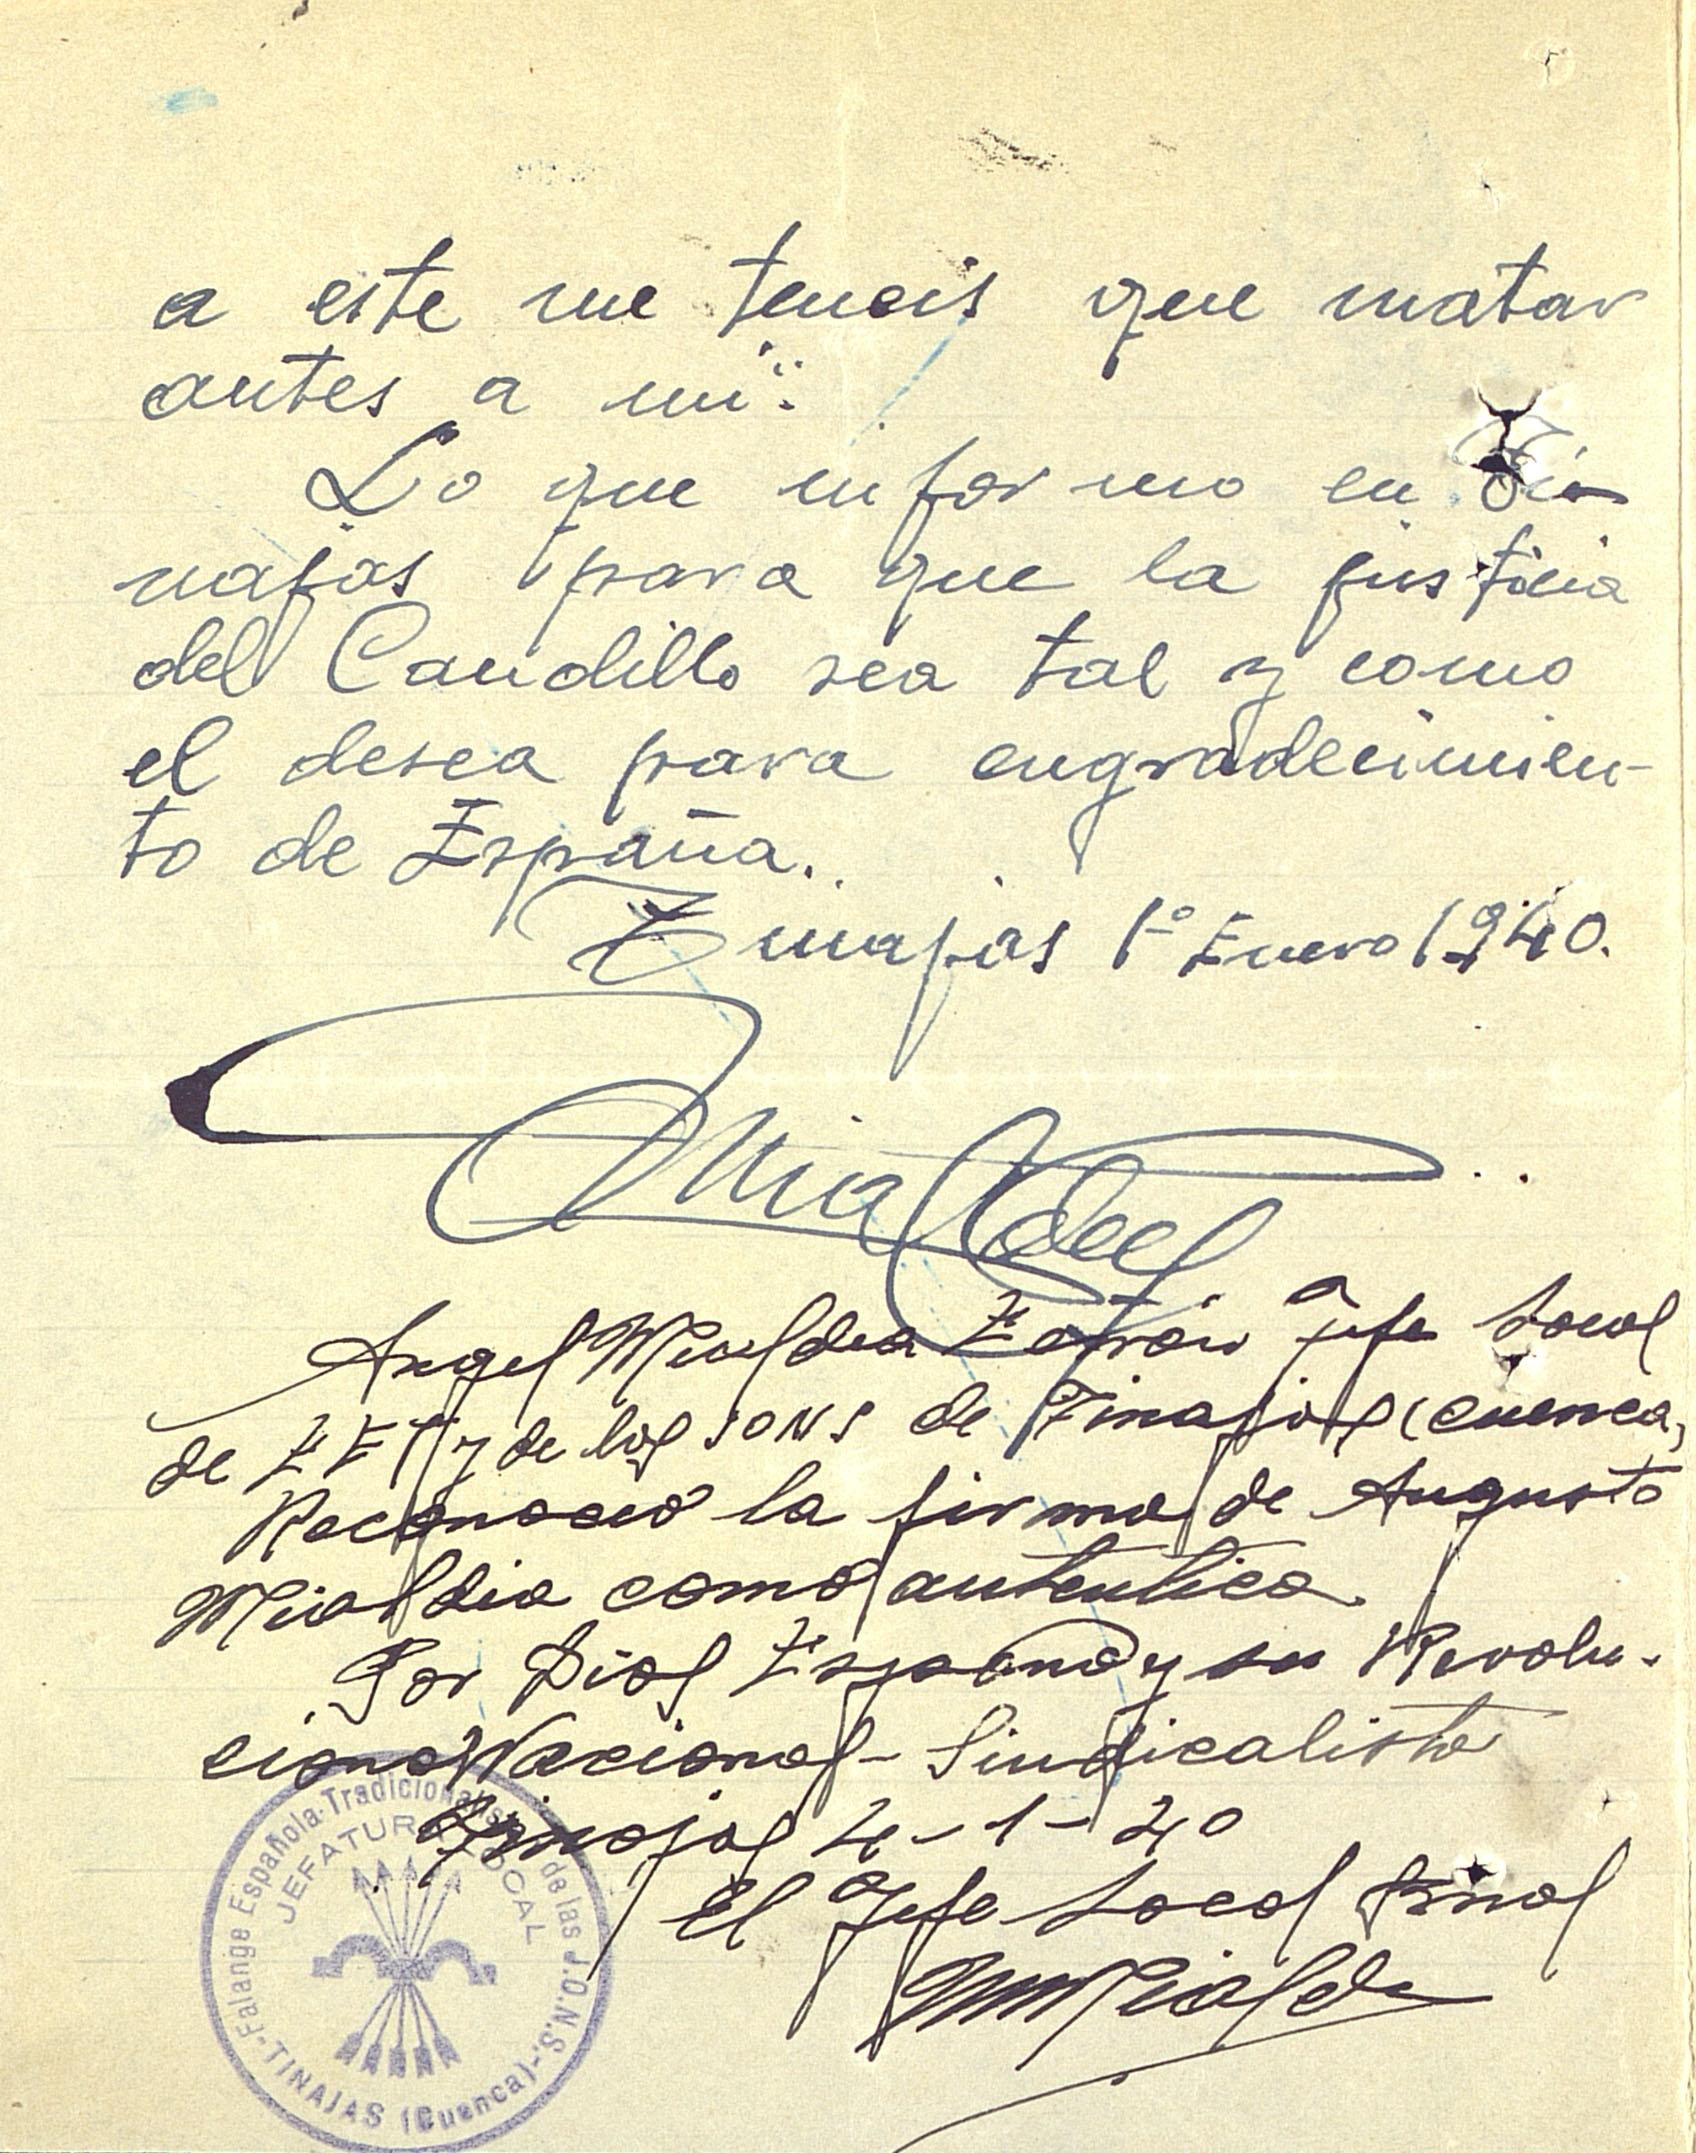 a este me teneis que matar
antes a mi".
Lo que informo en Ti-
najas para que la justicia
del Caudillo sea tal y como
el desea para engradecimien-
to de España.
Tinajas 1º Enero 1940.
Angel Mialdea Jefe Local
de FET y de las JONS de Tinajas (Cuenca,
Reconozco la firma de Augusto
Mialdea como autentica.
Por Dios España y su Revolu-
cion Nacional-Sindicalista
Tinajas 4-1-40
El Jefe Local
Mialdea
Falange Española Tradicionalista de las J.O.N.S.
JEFATURA LOCAL
-TINAJAS (Cuenca)-